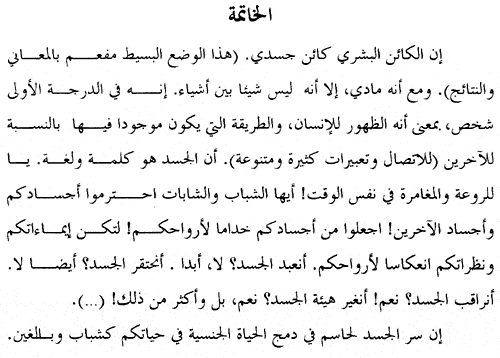 الخاتمة
إن الكائن البشري كائن جسدي. (هذا الوضع البسيط مفعم بالمعاني
والنتائج). ومع أنه مادي، إلا أنه ليس شيئا بين أشياء. إنه في الدرجة الأولى
شخص، بمعنى أنه الظهور للإنسان، والطريقة التي يكون موجودا فيها بالنسبة
للآخرين (للاتصال وتعبيرات كثيرة ومتنوعة). أن الجسد هو كلمة ولغة. يا
للروعة والمغامرة في نفس الوقت! أيها الشباب والشابات احترموا أجسادكم
وأجساد الآخرين! اجعلوا من أجسادكم خداما لأرواحكم! لتكن إيماءاتكم
ونظراتكم انعكاسا لأرواحكم. أنعبد الجسد؟ لا، أبدا . أنحتقر الجسد؟ أيضا لا.
أنراقب الجسد؟ نعم! أنغير هيئة الجسد؟ نعم، بل وأكثر من ذلك! (...).
إن سر الجسد لحاسم في دمج الحياة الجنسية في حياتكم كشباب وبالغين.